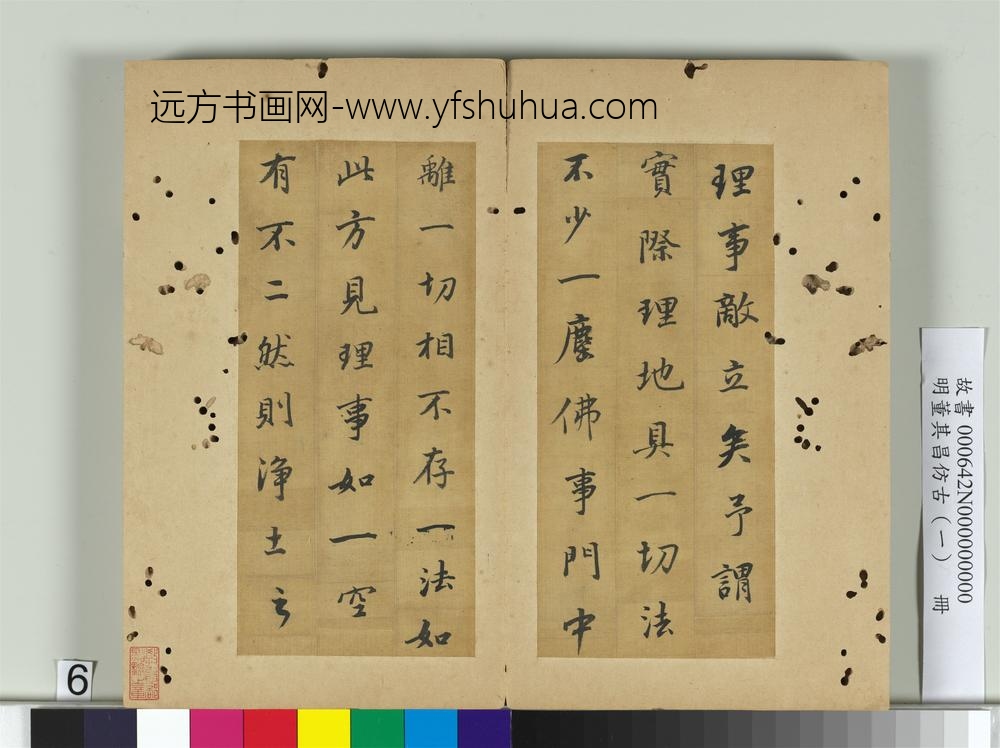 远方书画网-www.yfshuhua.com
理事敵立矣予謂
實際理地具一切法
不少一塵佛事門中
離一切相不存一法如
此方見理事如一空
有不二然則淨土之
故書 000642N000000000
明董其昌仿古(一) 冊
6